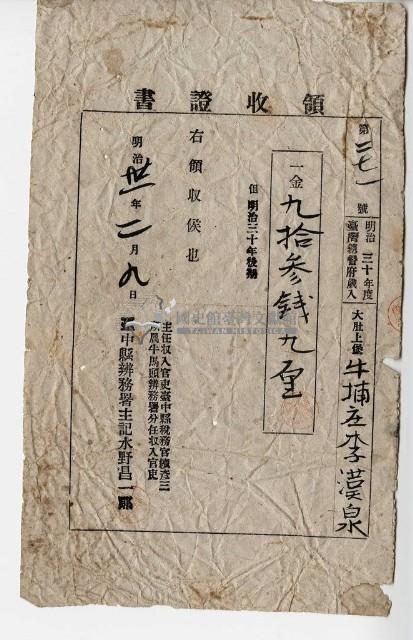 領收證書
第二七一號
明治三十年度
臺灣總督府歲入
大肚上堡牛埔庄李漢泉
一金九拾參錢九厘
但明治三十年後期
右領收候也
明治卅一年二月九日
主任收入官吏臺中縣稅務官
農牛馬頭辨務署分任收入官吏
臺中縣辨務署主記水野昌一郎
國史館臺灣文獻館
TAIWAN HISTORICA